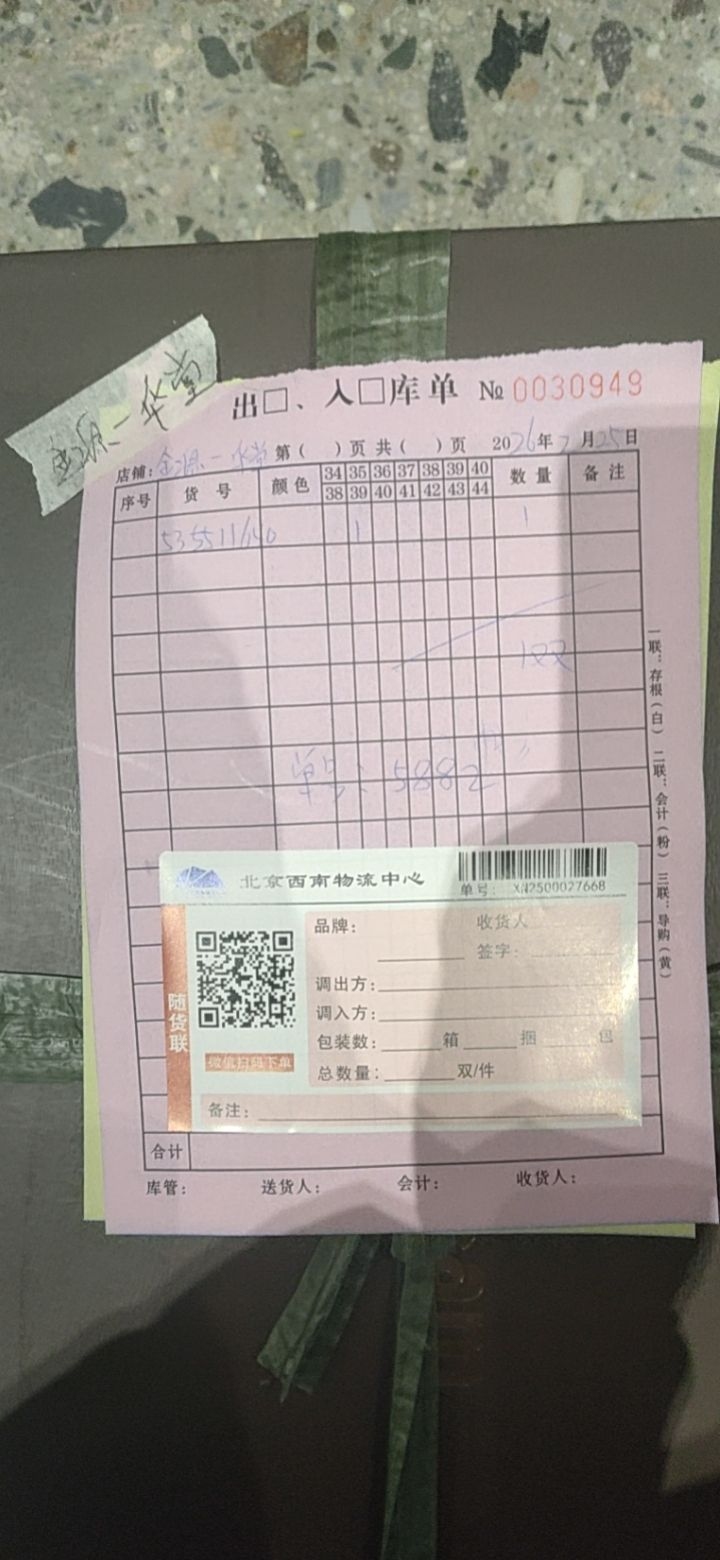 出□、入□库单 № 0030949
店铺: 金源一华堂 第( )页 共( )页 2026年 月25日
金源一华堂
序号 货号 颜色 34 35 36 37 38 39 40 数量 备注
38 39 40 41 42 43 44
1 1
1双
单号: 5882
一联:存根(白) 二联:会计(粉) 三联:导购(黄)
北京西南物流中心
单号: XN2500027668
随货联
微信扫码下单
品牌: 收货人
签字:
调出方:
调入方:
包装数: 箱 捆 包
总数量: 双/件
备注:
合计
库管: 送货人: 会计: 收货人: